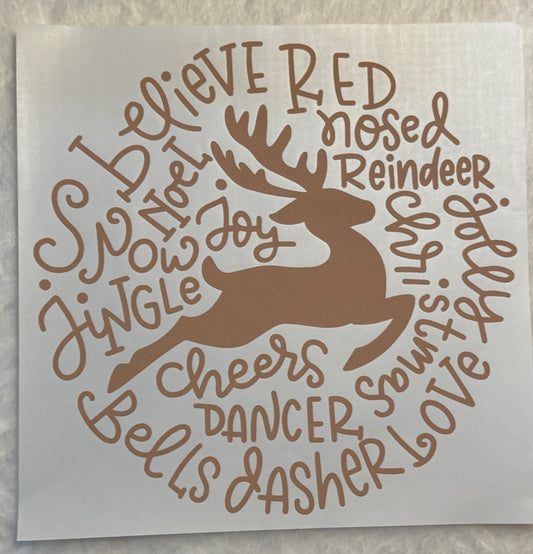 believe
RED
nosed
Reindeer
Noel
Joy
SNOW
JiNGLE
christmas
jolly
cheers
DANCER
Bells
dAsHER
LOVe